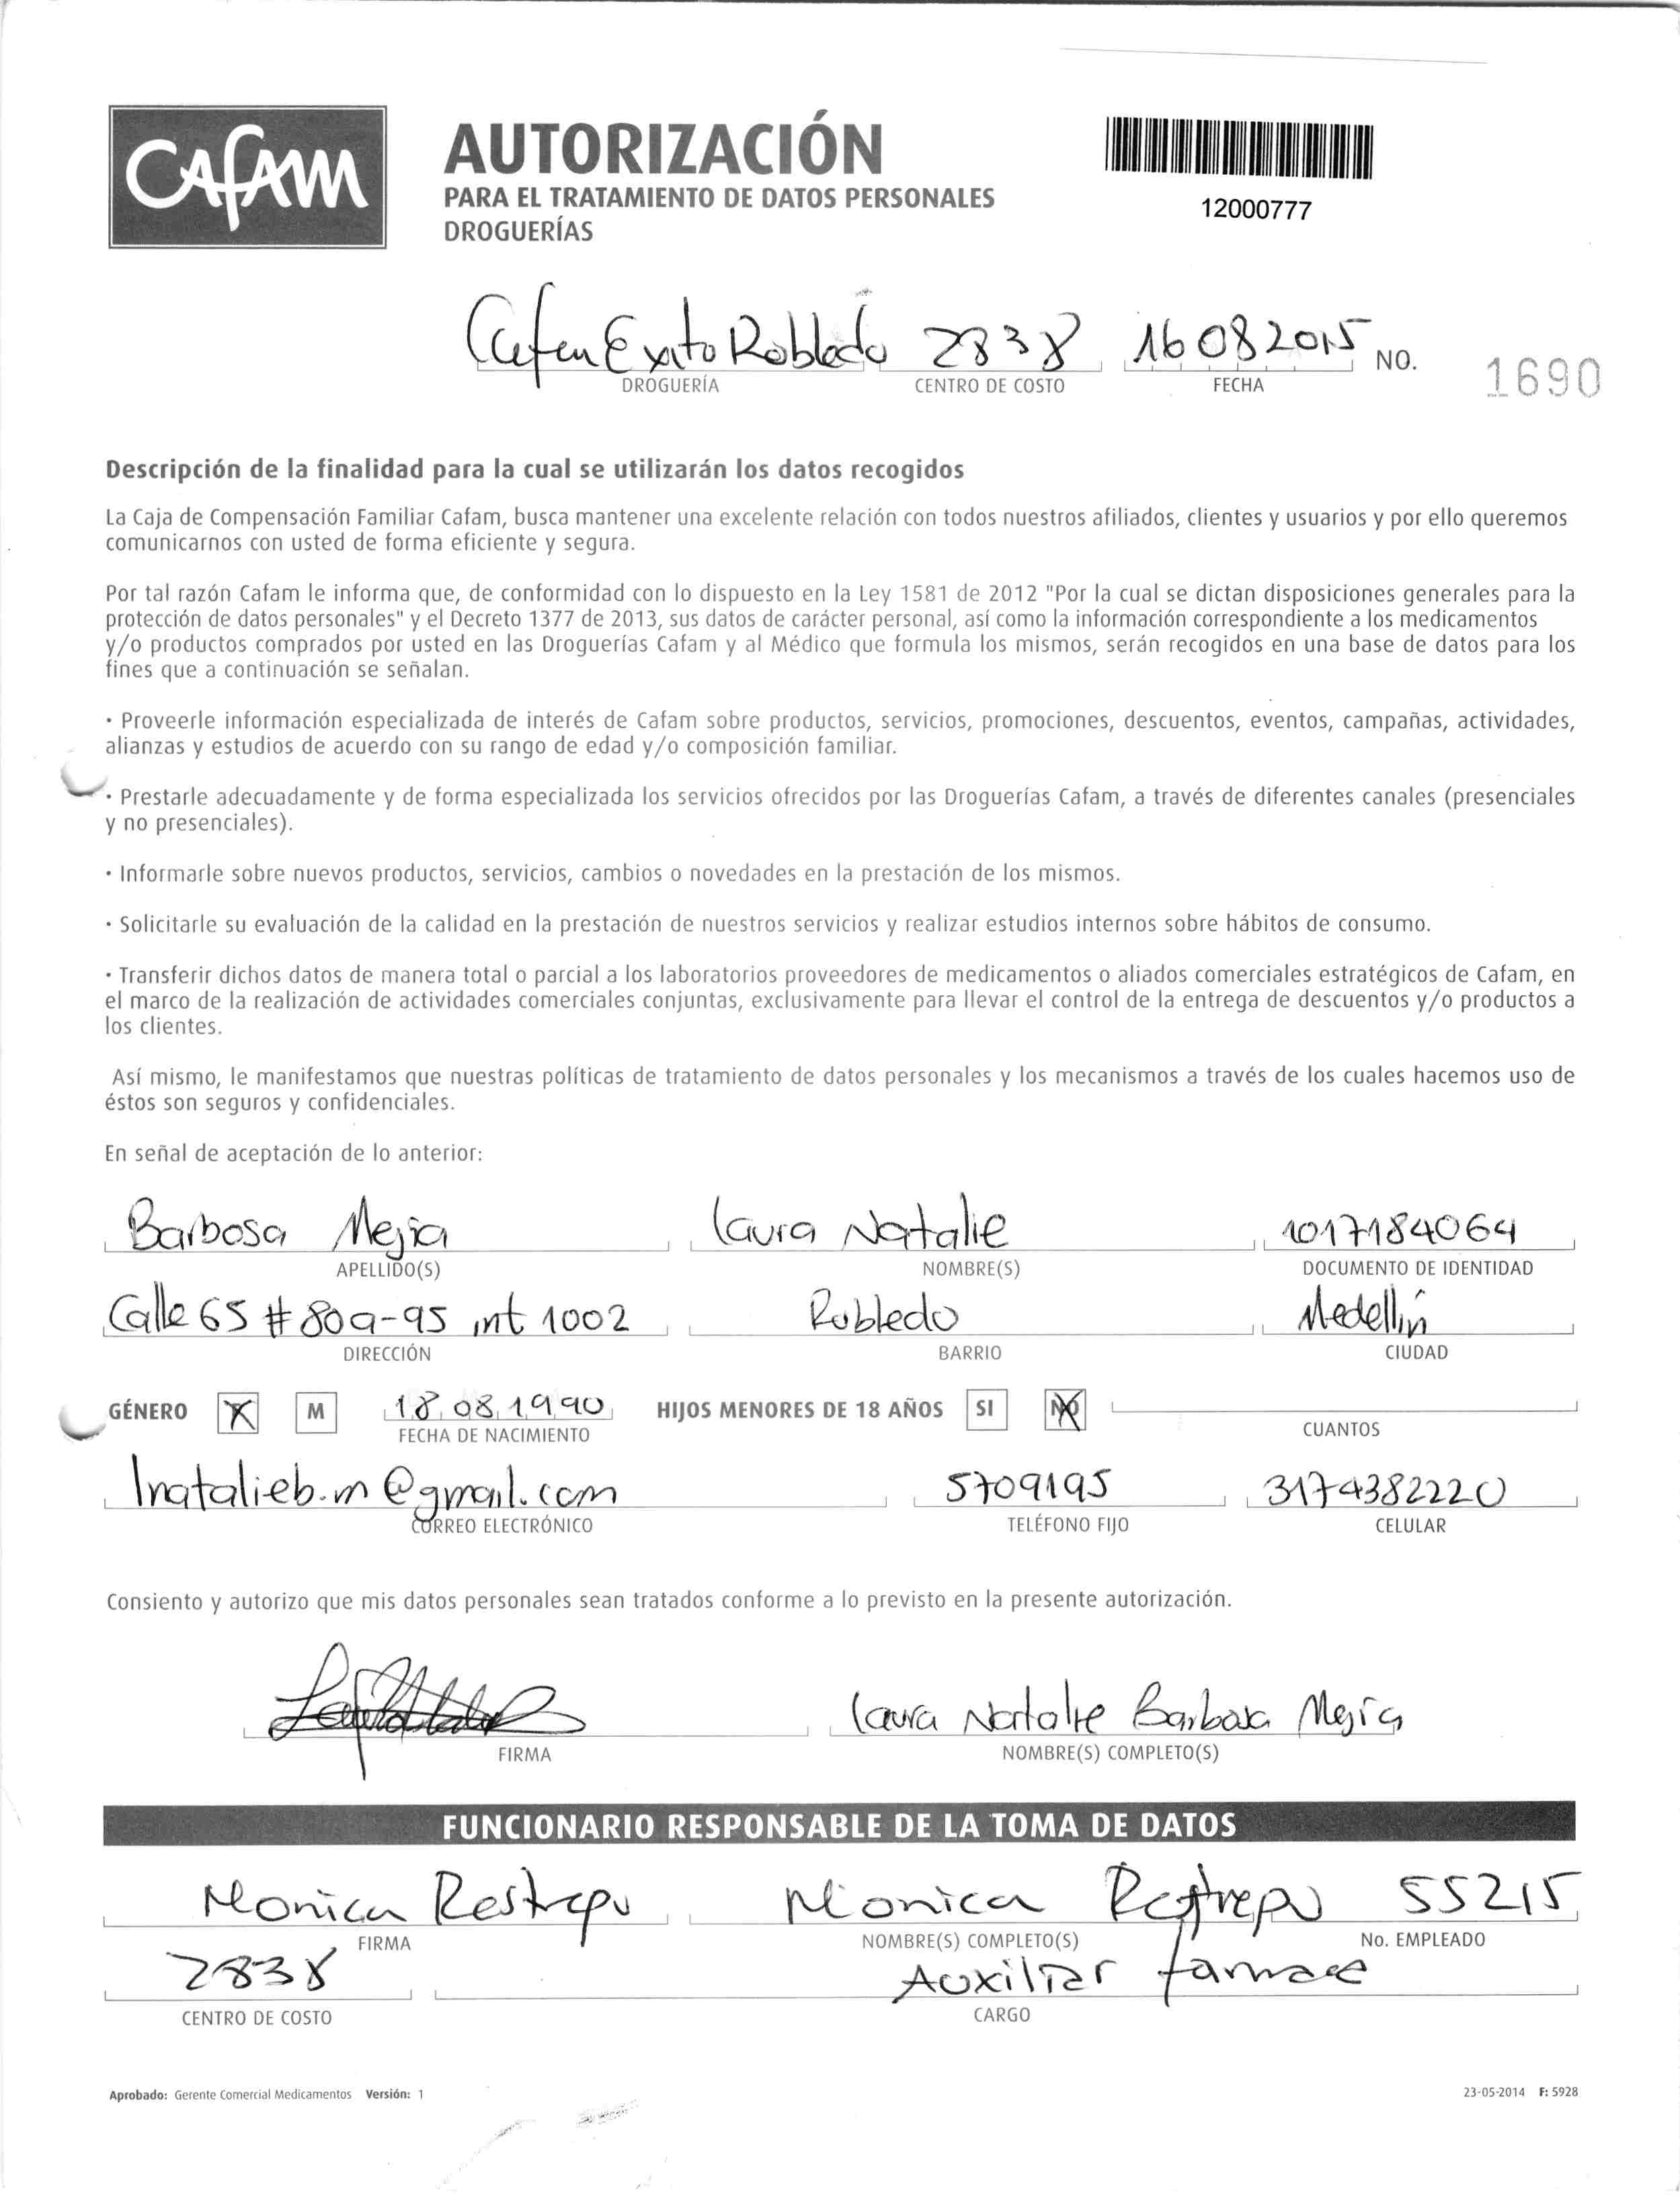 CAfAM
AUTORIZACIÓN
PARA EL TRATAMIENTO DE DATOS PERSONALES
DROGUERÍAS
12000777
Cafam Exito Robledo 2838 16 08 2015 NO. 1690
DROGUERÍA CENTRO DE COSTO FECHA
Descripción de la finalidad para la cual se utilizarán los datos recogidos
La Caja de Compensación Familiar Cafam, busca mantener una excelente relación con todos nuestros afiliados, clientes y usuarios y por ello queremos
comunicarnos con usted de forma eficiente y segura.
Por tal razón Cafam le informa que, de conformidad con lo dispuesto en la Ley 1581 de 2012 "Por la cual se dictan disposiciones generales para la
protección de datos personales" y el Decreto 1377 de 2013, sus datos de carácter personal, así como la información correspondiente a los medicamentos
y/o productos comprados por usted en las Droguerías Cafam y al Médico que formula los mismos, serán recogidos en una base de datos para los
fines que a continuación se señalan.
· Proveerle información especializada de interés de Cafam sobre productos, servicios, promociones, descuentos, eventos, campañas, actividades,
alianzas y estudios de acuerdo con su rango de edad y/o composición familiar.
· Prestarle adecuadamente y de forma especializada los servicios ofrecidos por las Droguerías Cafam, a través de diferentes canales (presenciales
y no presenciales).
· Informarle sobre nuevos productos, servicios, cambios o novedades en la prestación de los mismos.
· Solicitarle su evaluación de la calidad en la prestación de nuestros servicios y realizar estudios internos sobre hábitos de consumo.
· Transferir dichos datos de manera total o parcial a los laboratorios proveedores de medicamentos o aliados comerciales estratégicos de Cafam, en
el marco de la realización de actividades comerciales conjuntas, exclusivamente para llevar el control de la entrega de descuentos y/o productos a
los clientes.
Así mismo, le manifestamos que nuestras políticas de tratamiento de datos personales y los mecanismos a través de los cuales hacemos uso de
éstos son seguros y confidenciales.
En señal de aceptación de lo anterior:
Barbosa Mejia Laura Natalie 1017184064
APELLIDO(S) NOMBRE(S) DOCUMENTO DE IDENTIDAD
Calle 65 # 80a-95 int 1002 Robledo Medellín
DIRECCIÓN BARRIO CIUDAD
GÉNERO X M 18 08 1990 HIJOS MENORES DE 18 AÑOS SI NO
FECHA DE NACIMIENTO CUANTOS
lnatalieb.m@gmail.com 5709195 3174382220
CORREO ELECTRÓNICO TELÉFONO FIJO CELULAR
Consiento y autorizo que mis datos personales sean tratados conforme a lo previsto en la presente autorización.
Laura Natalie Barbosa Mejía
FIRMA NOMBRE(S) COMPLETO(S)
FUNCIONARIO RESPONSABLE DE LA TOMA DE DATOS
Monica Restrepo Monica Restrepo 55215
FIRMA NOMBRE(S) COMPLETO(S) No. EMPLEADO
2838 Auxiliar farmace
CENTRO DE COSTO CARGO
Aprobado: Gerente Comercial Medicamentos Versión: 1 23-05-2014 F: 5928